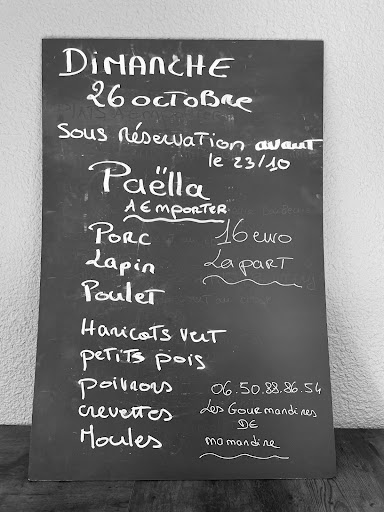 DIMANCHE
26 octobre
Sous Réservation avant
le 23/10
Paëlla
A EMPORTER
Porc 16 euro
Lapin La PART
Poulet
Haricots vert
petits pois
poivrons 06.50.88.86.54
crevettes Les Gourmandires
DE
Moules mamandine